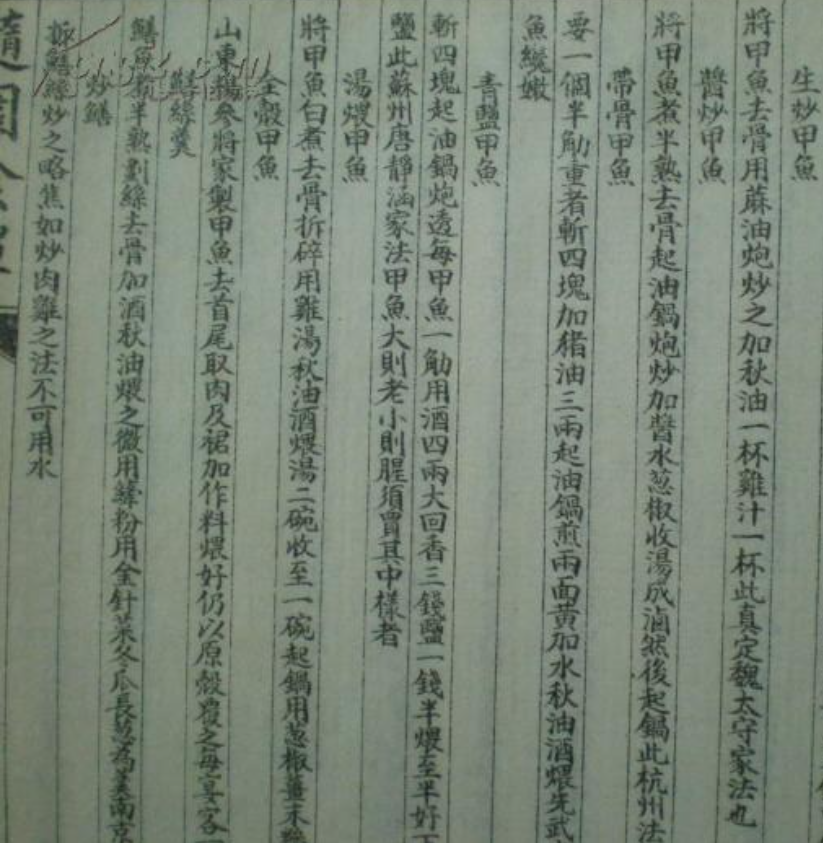 生炒甲魚
將甲魚去骨用蔴油炮炒之加秋油一杯雞汁一杯此真定魏太守家法也
醬炒甲魚
將甲魚煮半熟去骨起油鍋炮炒加醬水葱椒收湯成滷然後起鍋此杭州法
帶骨甲魚
要一個半觔重者斬四塊加猪油三兩起油鍋煎兩面黄加水秋油酒煨先武
魚纔嫩
青鹽甲魚
斬四塊起油鍋炮透每甲魚一觔用酒四兩大回香三錢鹽一錢半煨至半好下
鹽此蘇州唐靜涵家法甲魚大則老小則腥須買其中樣者
湯煨甲魚
將甲魚白煮去骨折碎用雞湯秋油酒煨湯二碗收至一碗起鍋用葱椒薑末
全殼甲魚
山東楊參將家製甲魚去首尾取肉及裙加作料煨好仍以原殼覆之每宴客一
鱔絲羹
鱔魚煮半熟劃絲去骨加酒秋油煨之微用縴粉用金針菜冬瓜長葱為羹南京
炒鱔
拆鱔絲炒之略焦如炒肉雞之法不可用水
隨園食單